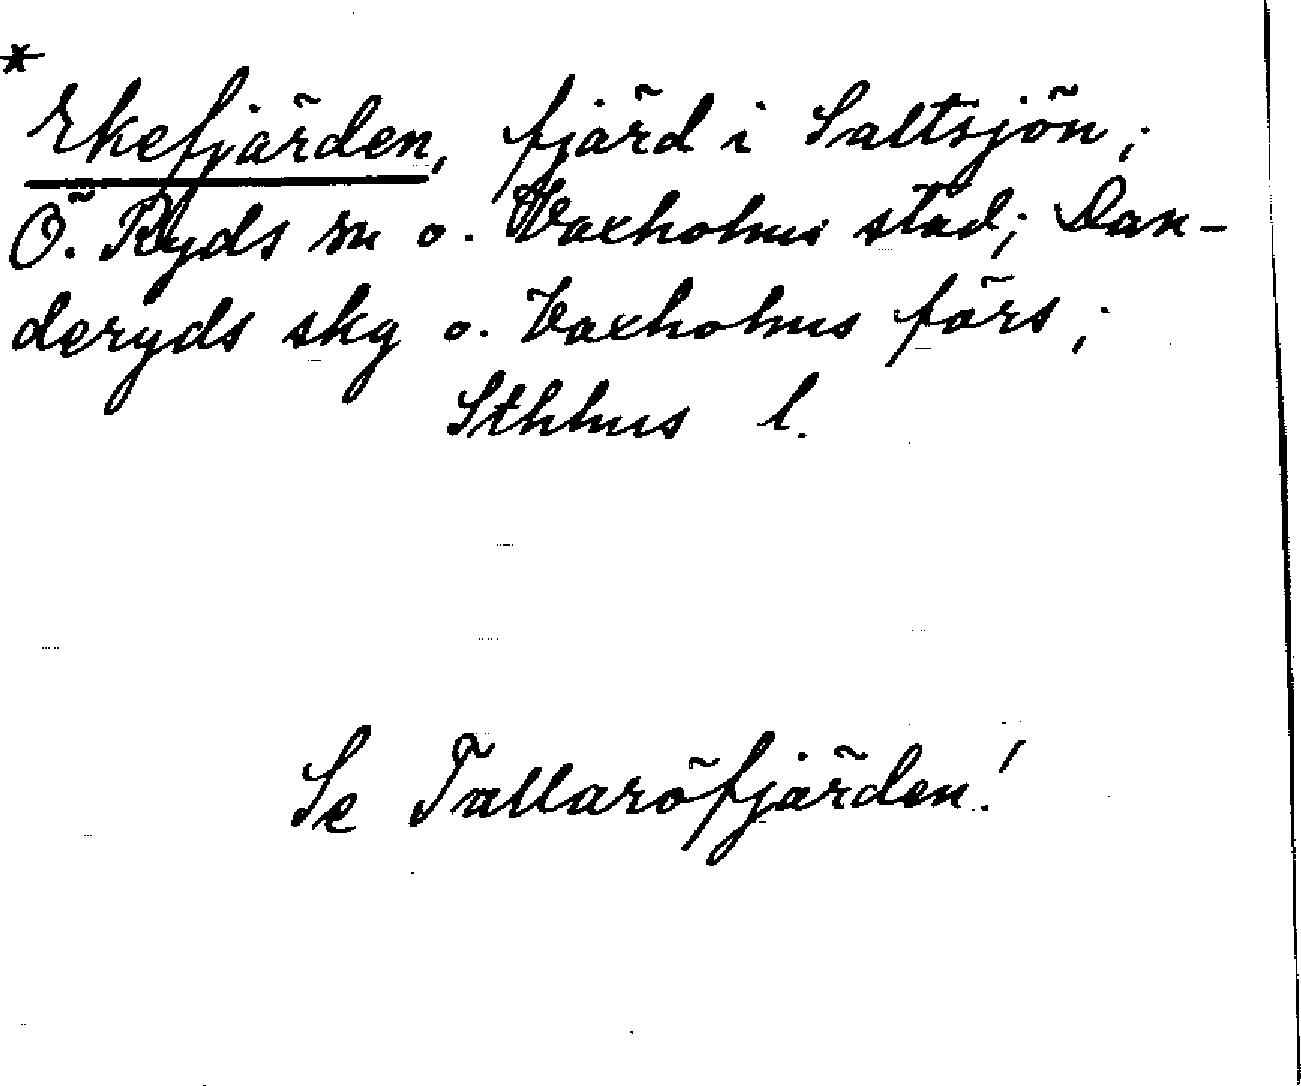 *
Ekefjärden, fjärd i Saltsjön;
Ö. Ryds sn o. Vaxholms stad; Dan-
deryds skg o. Vaxholms förs;
Sthlms l.
Se Tallaröfjärden!